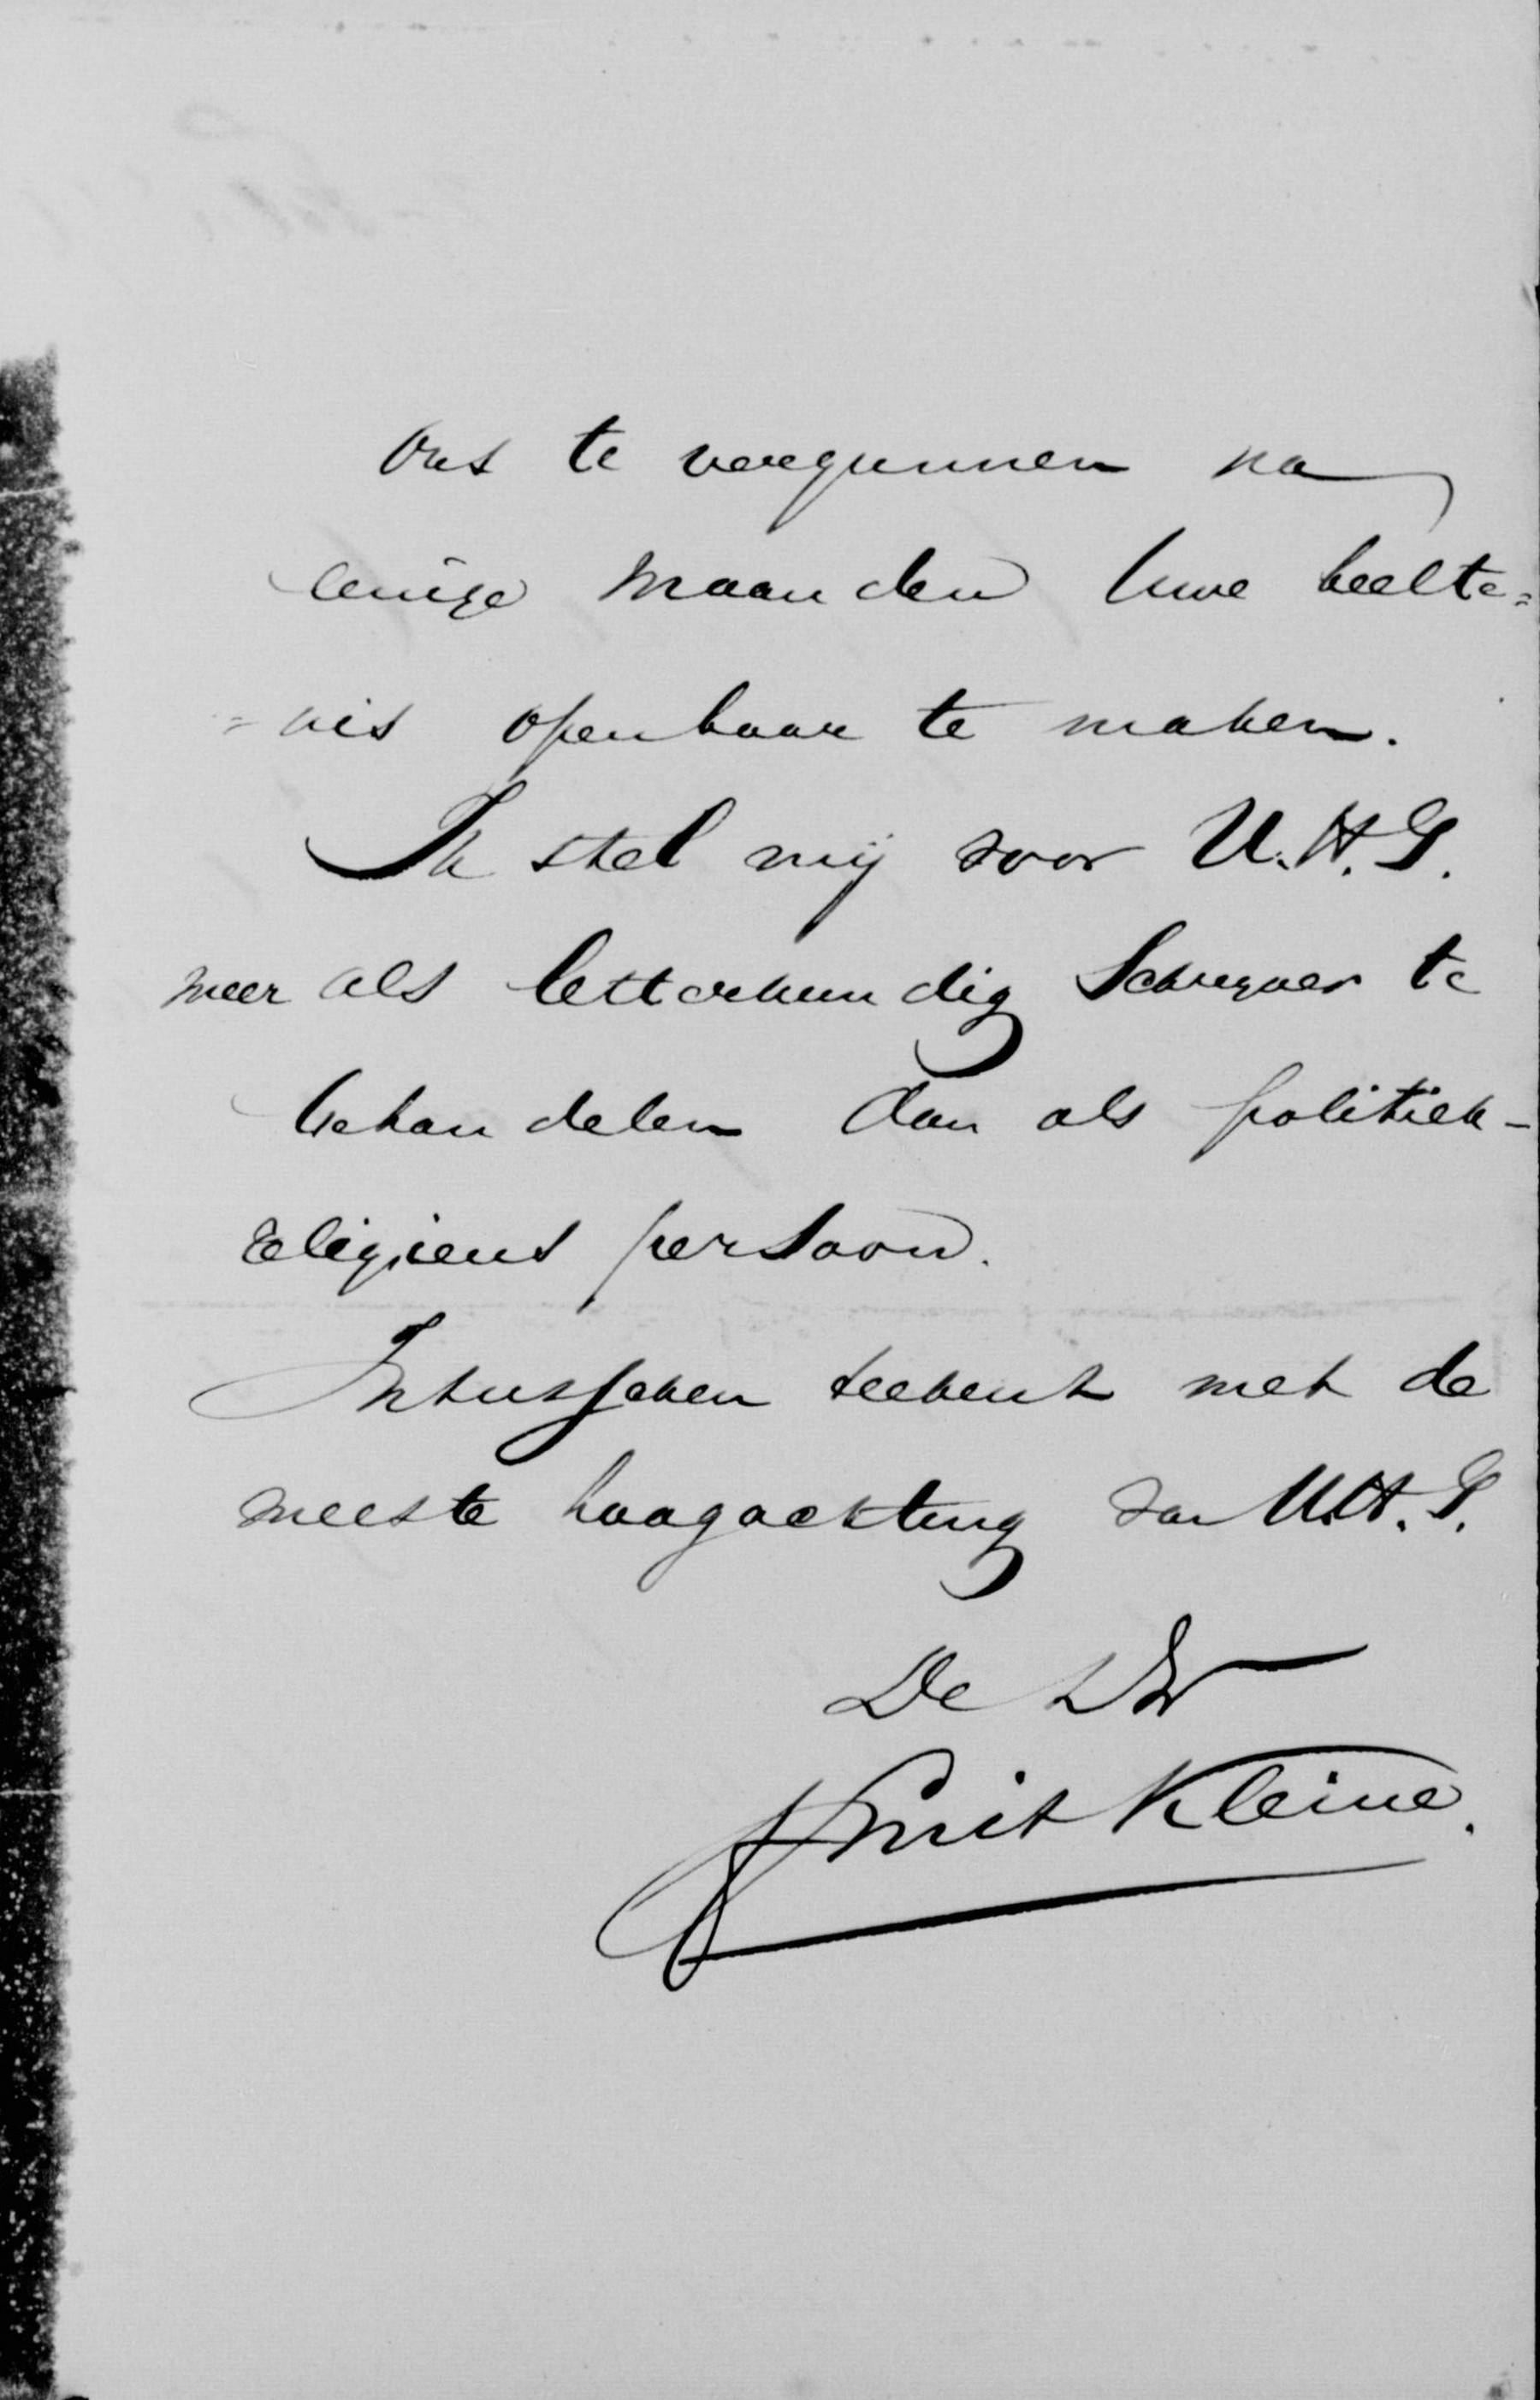 ons te vergunnen na
eenige maanden Uwe beelte=
=nis openbaar te maken.
Ik stel mij voor U.H.G.
meer als letterkundig Schrijver te
behandelen dan als politiek-
religieus persoon.
Intusschen teekent met de
meeste hoogachting van U.H.G.
De DW
Smit Kleine.